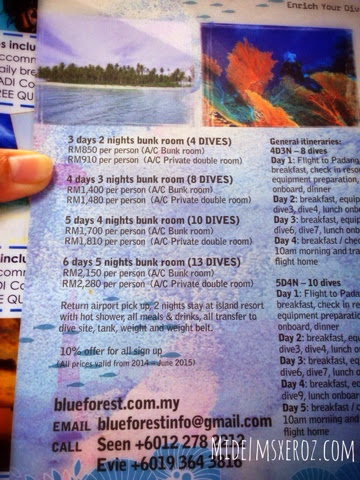 Enrich Your Div
es inclu
accomm
aily bre
ADI Co
REE QU
3 days 2 nights bunk room (4 DIVES)
RM850 per person (A/C Bunk room)
RM910 per person (A/C Private double room)
4 days 3 nights bunk room (8 DIVES)
RM1,400 per person (A/C Bunk room)
RM1,480 per person (A/C Private double room)
5 days 4 nights bunk room (10 DIVES)
RM1,700 per person (A/C Bunk room)
RM1,810 per person (A/C Private double room)
6 days 5 nights bunk room (13 DIVES)
RM2,150 per person (A/C Bunk room)
RM2,280 per person (A/C Private double room)
Return airport pick up, 2 nights stay at island resort
with hot shower, all meals & drinks, all transfer to
dive site, tank, weight and weight belt.
10% offer for all sign up
(All prices valid from 2014 - June 2015)
blueforest.com.my
EMAIL blueforestinfo@gmail.com
CALL Seen +6012 278
Evie +6019 364 3818
General itineraries:
4D3N – 8 dives
Day 1: Flight to Padang
breakfast, check in resor
equipment preparation,
onboard, dinner
Day 2: breakfast, equip
dive3, dive4, lunch onb
Day 3: breakfast, equip
dive6, dive7, lunch onb
Day 4: breakfast / chec
10am morning and tran
flight home
5D4N – 10 dives
Day 1: Flight to Padan
breakfast, check in re
equipment preparatio
onboard, dinner
Day 2: breakfast, equ
dive3, dive4, lunch o
Day 3: breakfast, equ
dive6, dive7, lunch o
Day 4: breakfast, eq
dive9, lunch onboar
Day 5: breakfast / c
10am morning and
flight home
s inclu
comm
ly bre
DI Co
E QU
MIDEIMSXEROZ.COM